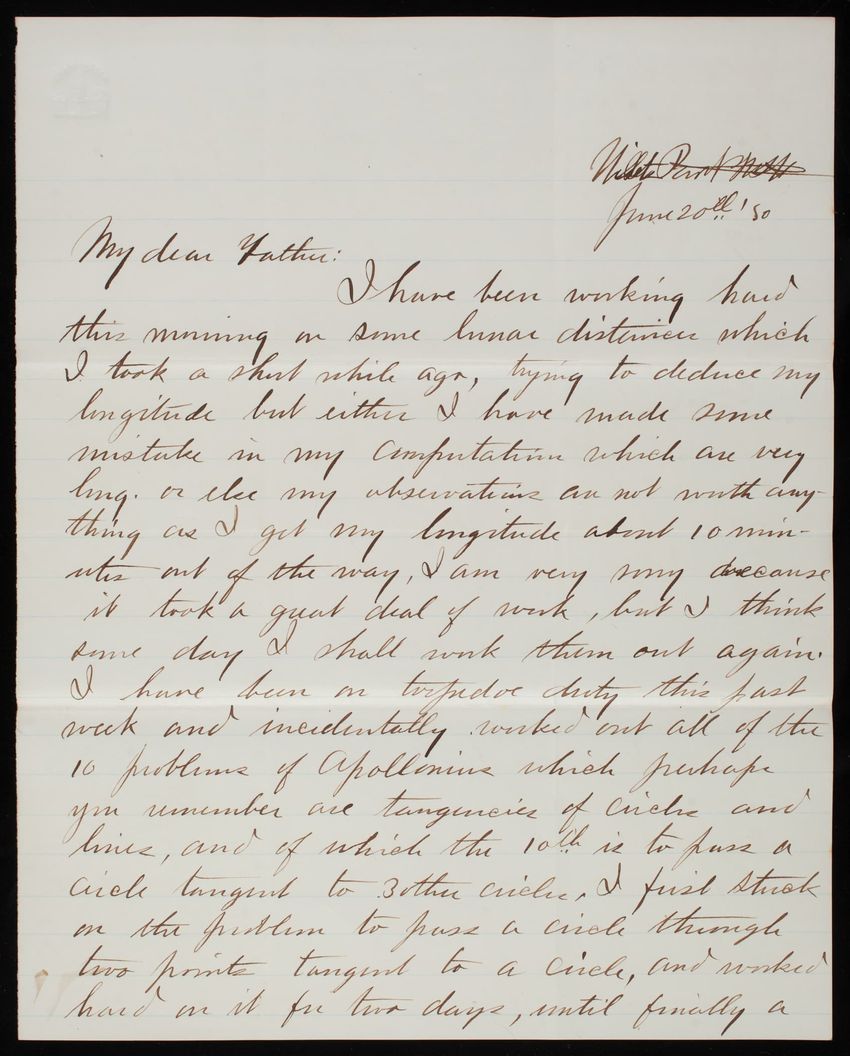 Willets Point N.Y.
June 20th '80
My dear Father:
I have been working hard
this morning on some lunar distances which
I took a short while ago, trying to deduce my
longitude but either I have made some
mistake in my computation which are very
long. or else my observations are not worth any-
thing as I get my longitude about 10 min-
utes out of the way, I am very sorry because
it took a great deal of work, but I think
some day I shall work them out again.
I have been on torpedoe duty this past
week and incidentally worked out all of the
10 problems of Apollonius which perhaps
you remember are tangencies of circles and
lines, and of which the 10th is to pass a
circle tangent to 3 other circles. I first stuck
on the problem to pass a circle through
two points tangent to a circle, and worked
hard on it for two days, until finally a